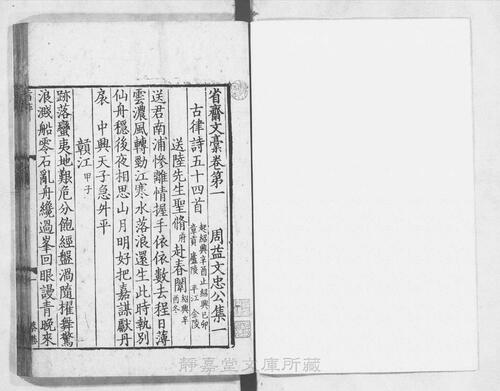 省齋文稾卷第一 周益文忠公集一
古律詩五十四首 起紹興辛酉止紹興己卯 章貢 廬陵 平江 金陵
送陸先生聖脩府赴春闈 紹興辛酉冬
送君南浦慘離情握手依依數去程日薄
雲濃風轉勁江寒水落浪還生此時執別
仙舟穩後夜相思山月明好把嘉謀獻丹
扆中興天子急升平
贛江 甲子
跡落蠻夷地艱危分飽經盤渦隨櫂舞驚
浪濺船零石亂舟纔過峯回眼謾青晚來
靜嘉堂文庫所藏